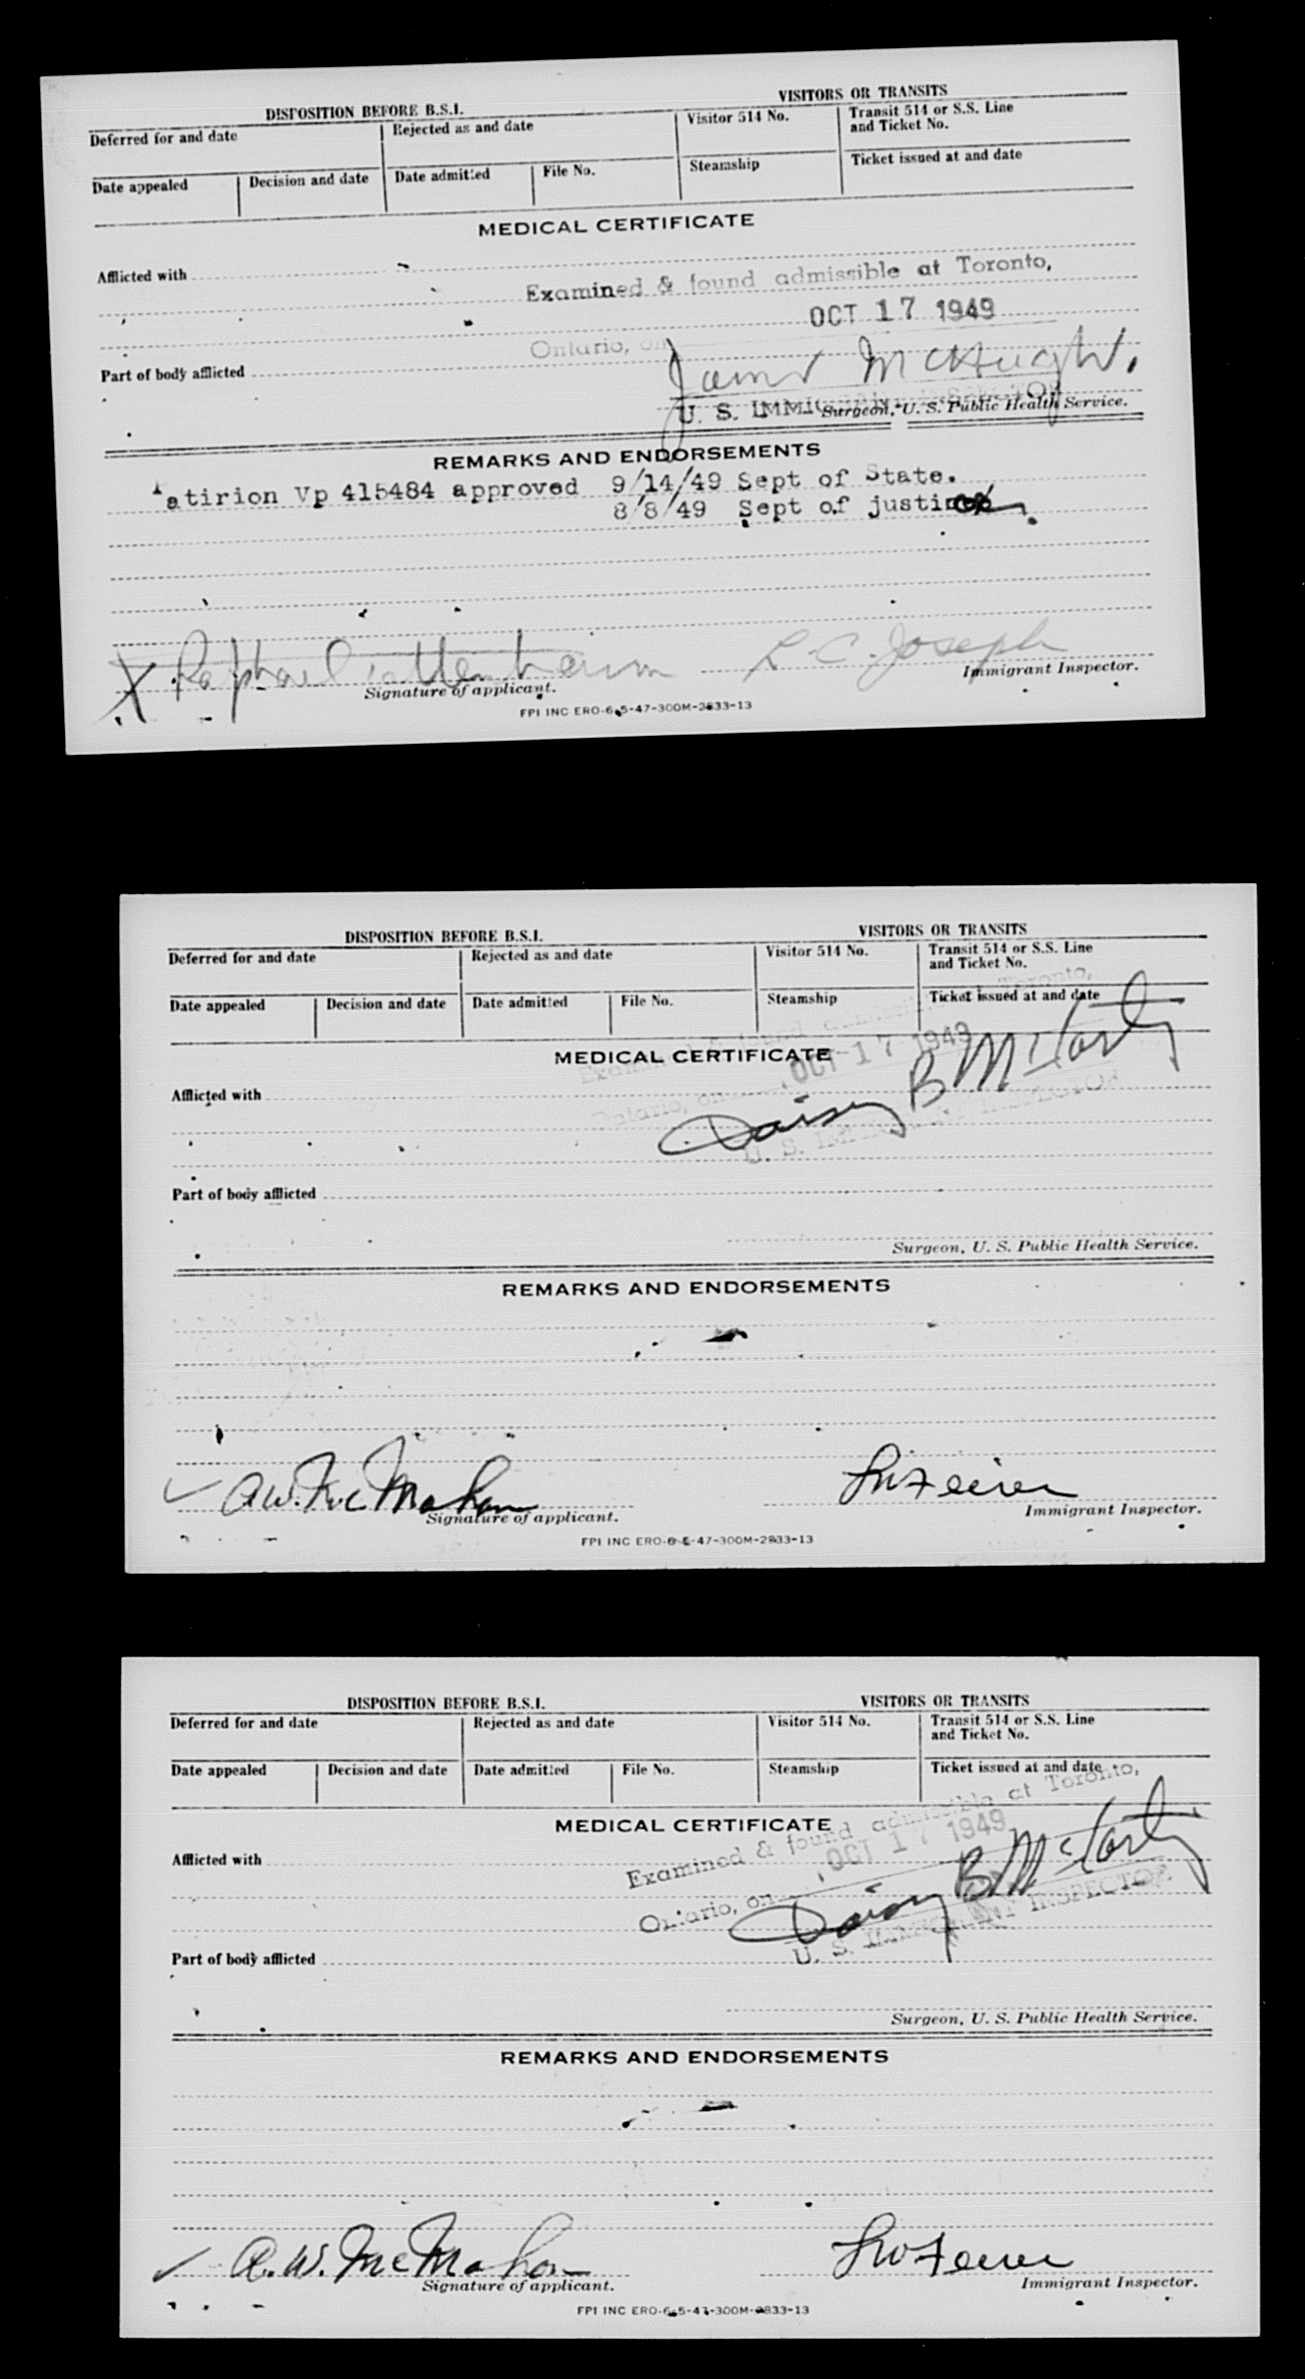 DISPOSITION BEFORE B.S.I.
VISITORS OR TRANSITS
Deferred for and date
Rejected as and date
Visitor 514 No.
Transit 514 or S.S. Line
and Ticket No.
Date appealed
Decision and date
Date admitted
File No.
Steamship
Ticket issued at and date
MEDICAL CERTIFICATE
Afflicted with
Examined & found admissible at Toronto,
OCT 17 1949
Ontario, on
Part of body afflicted
James McHugh.
U. S. IMMIGRANT INSPECTOR
Surgeon, U. S. Public Health Service.
REMARKS AND ENDORSEMENTS
atirion Vp 415484 approved 9/14/49 Sept of State.
8/8/49 Sept of justice
X Raphael Tattenbaum
L. C. Joseph
Signature of applicant.
Immigrant Inspector.
FPI INC ERO-6-5-47-300M-2833-13
DISPOSITION BEFORE B.S.I.
VISITORS OR TRANSITS
Deferred for and date
Rejected as and date
Visitor 514 No.
Transit 514 or S.S. Line
and Ticket No.
Date appealed
Decision and date
Date admitted
File No.
Steamship
Ticket issued at and date
MEDICAL CERTIFICATE
Examined & found admissible at Toronto,
OCT 17 1949
Afflicted with
Ontario, on
Daisy B McCarty
U. S. IMMIGRANT INSPECTOR
Part of body afflicted
Surgeon, U. S. Public Health Service.
REMARKS AND ENDORSEMENTS
A.W. McMahon
Signature of applicant.
Immigrant Inspector.
FPI INC ERO-6-5-47-300M-2833-13
DISPOSITION BEFORE B.S.I.
VISITORS OR TRANSITS
Deferred for and date
Rejected as and date
Visitor 514 No.
Transit 514 or S.S. Line
and Ticket No.
Date appealed
Decision and date
Date admitted
File No.
Steamship
Ticket issued at and date
MEDICAL CERTIFICATE
Examined & found admissible at Toronto,
OCT 17 1949
Afflicted with
Ontario, on
Daisy B McCarty
U. S. IMMIGRANT INSPECTOR
Part of body afflicted
Surgeon, U. S. Public Health Service.
REMARKS AND ENDORSEMENTS
A. W. McMahon
Signature of applicant.
Immigrant Inspector.
FPI INC ERO-6-5-47-300M-2833-13